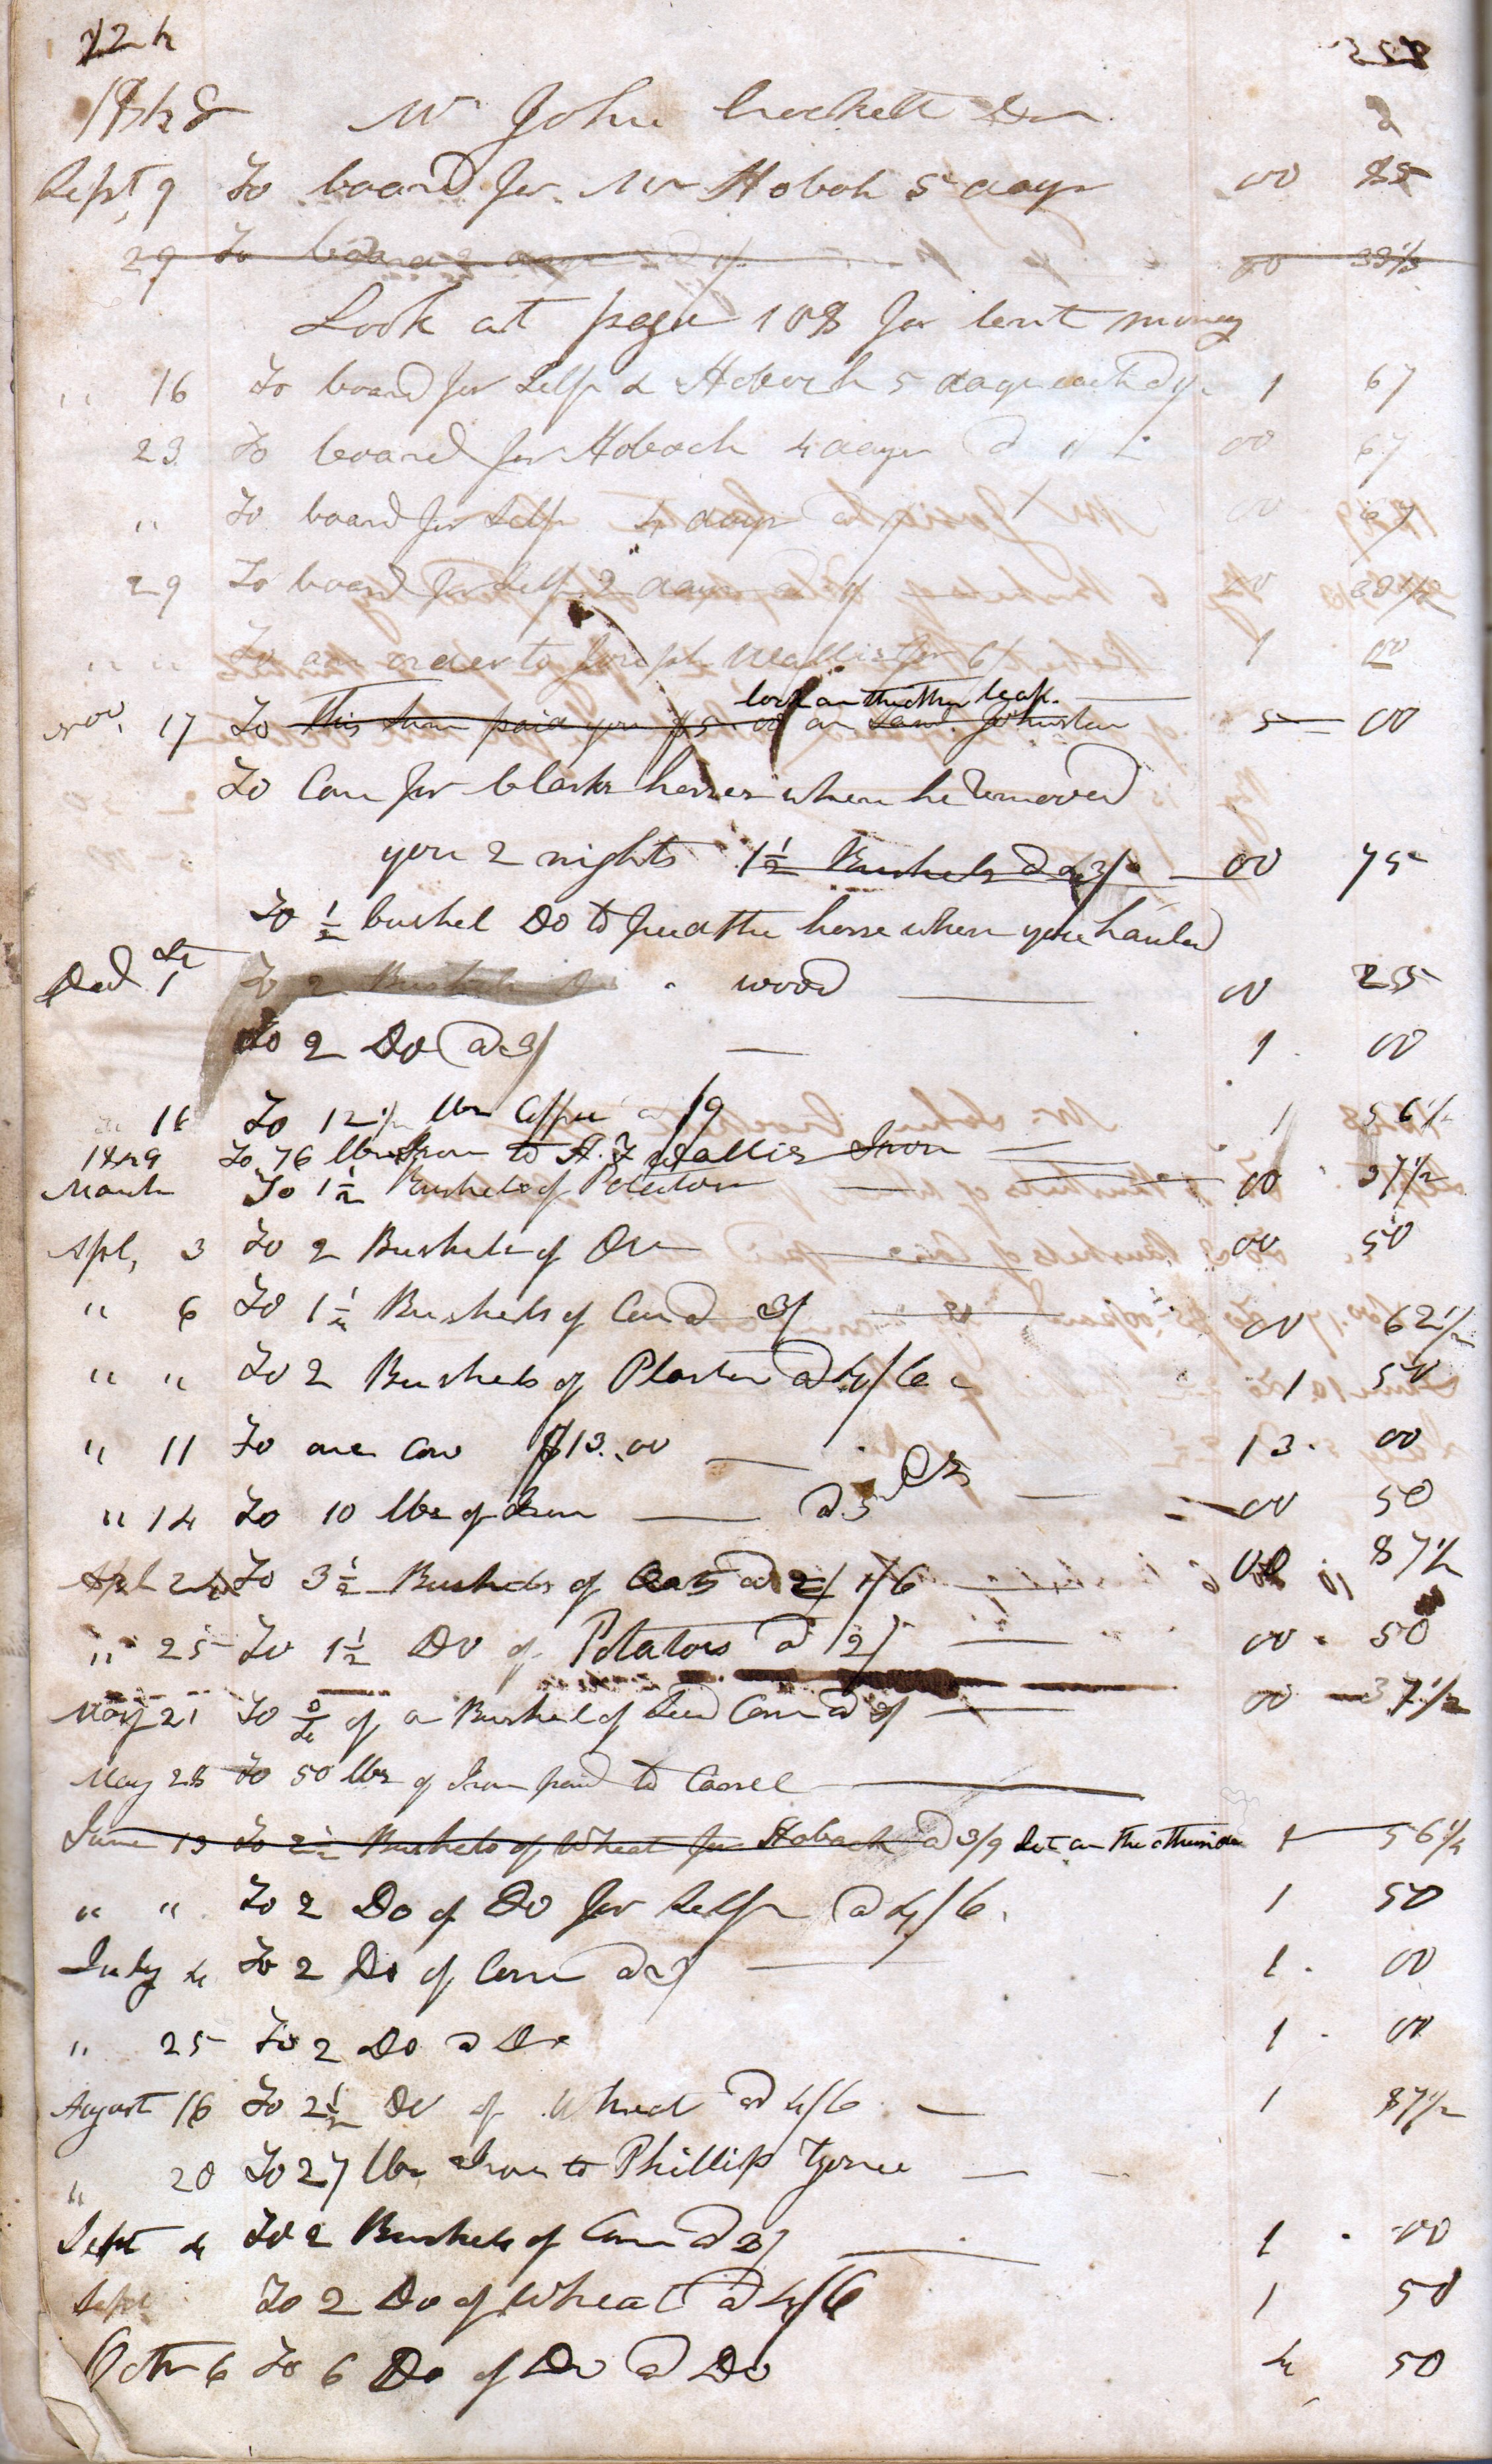 124
225
1848 Mr John Crockett Dr
Sept, 9 To board for Mr Hoboh 5 days 00 85
29 To board 2 days 00 33 1/3
Look at page 108 for lent money
" 16 To board for Self & Hobach 5 days each 1 67
23 To board for Hobach 4 days @ 00 67
" To board for Self 4 days @ 00 67
29 To board for Self 2 days 00 33 1/3
" " To an order to Joseph Wallis for 6/ 1 00
look on the other leaf
Nov. 17 To This Sum paid you $5.00 on Johnston 5 00
To Corn for Clarks horses when he removed
you 2 nights 1 1/2 Bushels @ 3/ 00 75
To 1/2 bushel Do to feed the horse when you hauled
Decr 1 To 2 Bushels Do wood 00 25
To 2 Do @ 3/ 1 00
" 16 To 12 1/2 lbs Coffee @ /9 1 56 1/2
1849 To 76 lbs Iron to A. F Wallis Iron
March To 1 1/2 Bushels of Potatoes 00 37 1/2
Apl, 3 To 2 Bushels of Do 00 50
" 6 To 1 1/4 Bushels of Corn @ 3/ 00 62 1/2
" " To 2 Bushels of Plaster @ 4/6 1 50
" 11 To one Cow $13.00 13. 00
" 14 To 10 lbs of Iron @ 5 cts 00 50
Apl 24 To 3 1/2 Bushels of Oats @ 2/ 1/6 00 87 1/2
" 25 To 1 1/2 Do of Potatoes @ 2/ 00 50
May 21 To 3/4 of a Bushel of Seed Corn @ 3/ 00 37 1/2
May 28 To 50 lbs of Iron paid to
June 13 To 2 1/2 Bushels of Wheat for Hobach @ 3/9 Set on the other side 1 56 1/4
" " To 2 Do of Do for Self @ 4/6. 1 50
July 4 To 2 Do of Corn @ 3/ 1. 00
" 25 To 2 Do @ Do 1. 00
August 16 To 2 1/2 Do of Wheat @ 4/6 1 87 1/2
" 20 To 27 lbs Iron to Phillip
Sept 4 To 2 Bushels of Corn @ 3/ 1. 00
Sept To 2 Do of Wheat @ 4/6 1 50
Octr 6 To 6 Do of Do @ Do 4 50